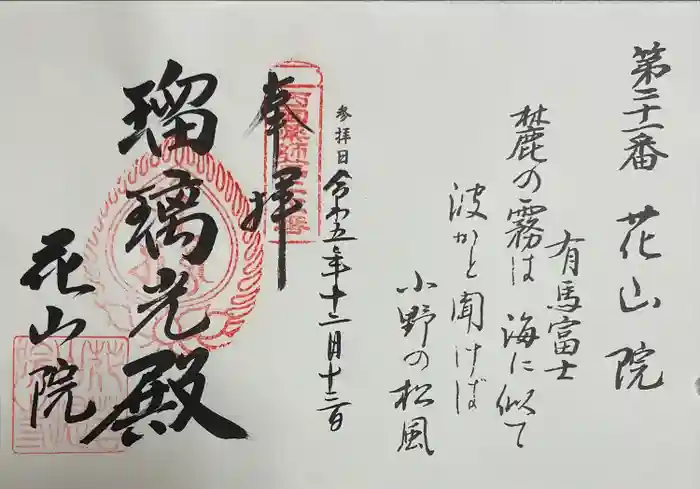 第二十一番 花山院
有馬富士
麓の霧は 海に似て
波かと聞けば
小野の松風
参拝日 令和五年十二月十三日
奉拝
西国薬師第二十一番
瑠璃光殿
花山院